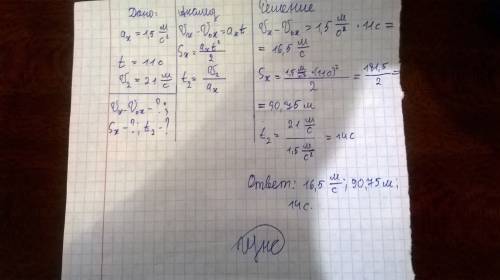 Дано:
aₓ = 1,5 м/с²
t = 11 с
V₂ = 21 м/с
Vₓ - V₀ₓ - ?
Sₓ - ?; t₂ - ?
Анализ
Vₓ - V₀ₓ = aₓt
Sₓ = aₓt²/2
t₂ = V₂/aₓ
Решение
Vₓ - V₀ₓ = 1,5 м/с² · 11 с =
= 16,5 м/с
Sₓ = 1,5 м/с² · (11 с)²/2 = 181,5/2 =
= 90,75 м
t₂ = 21 м/с / 1,5 м/с² = 14 с
Ответ: 16,5 м/с; 90,75 м;
14 с.